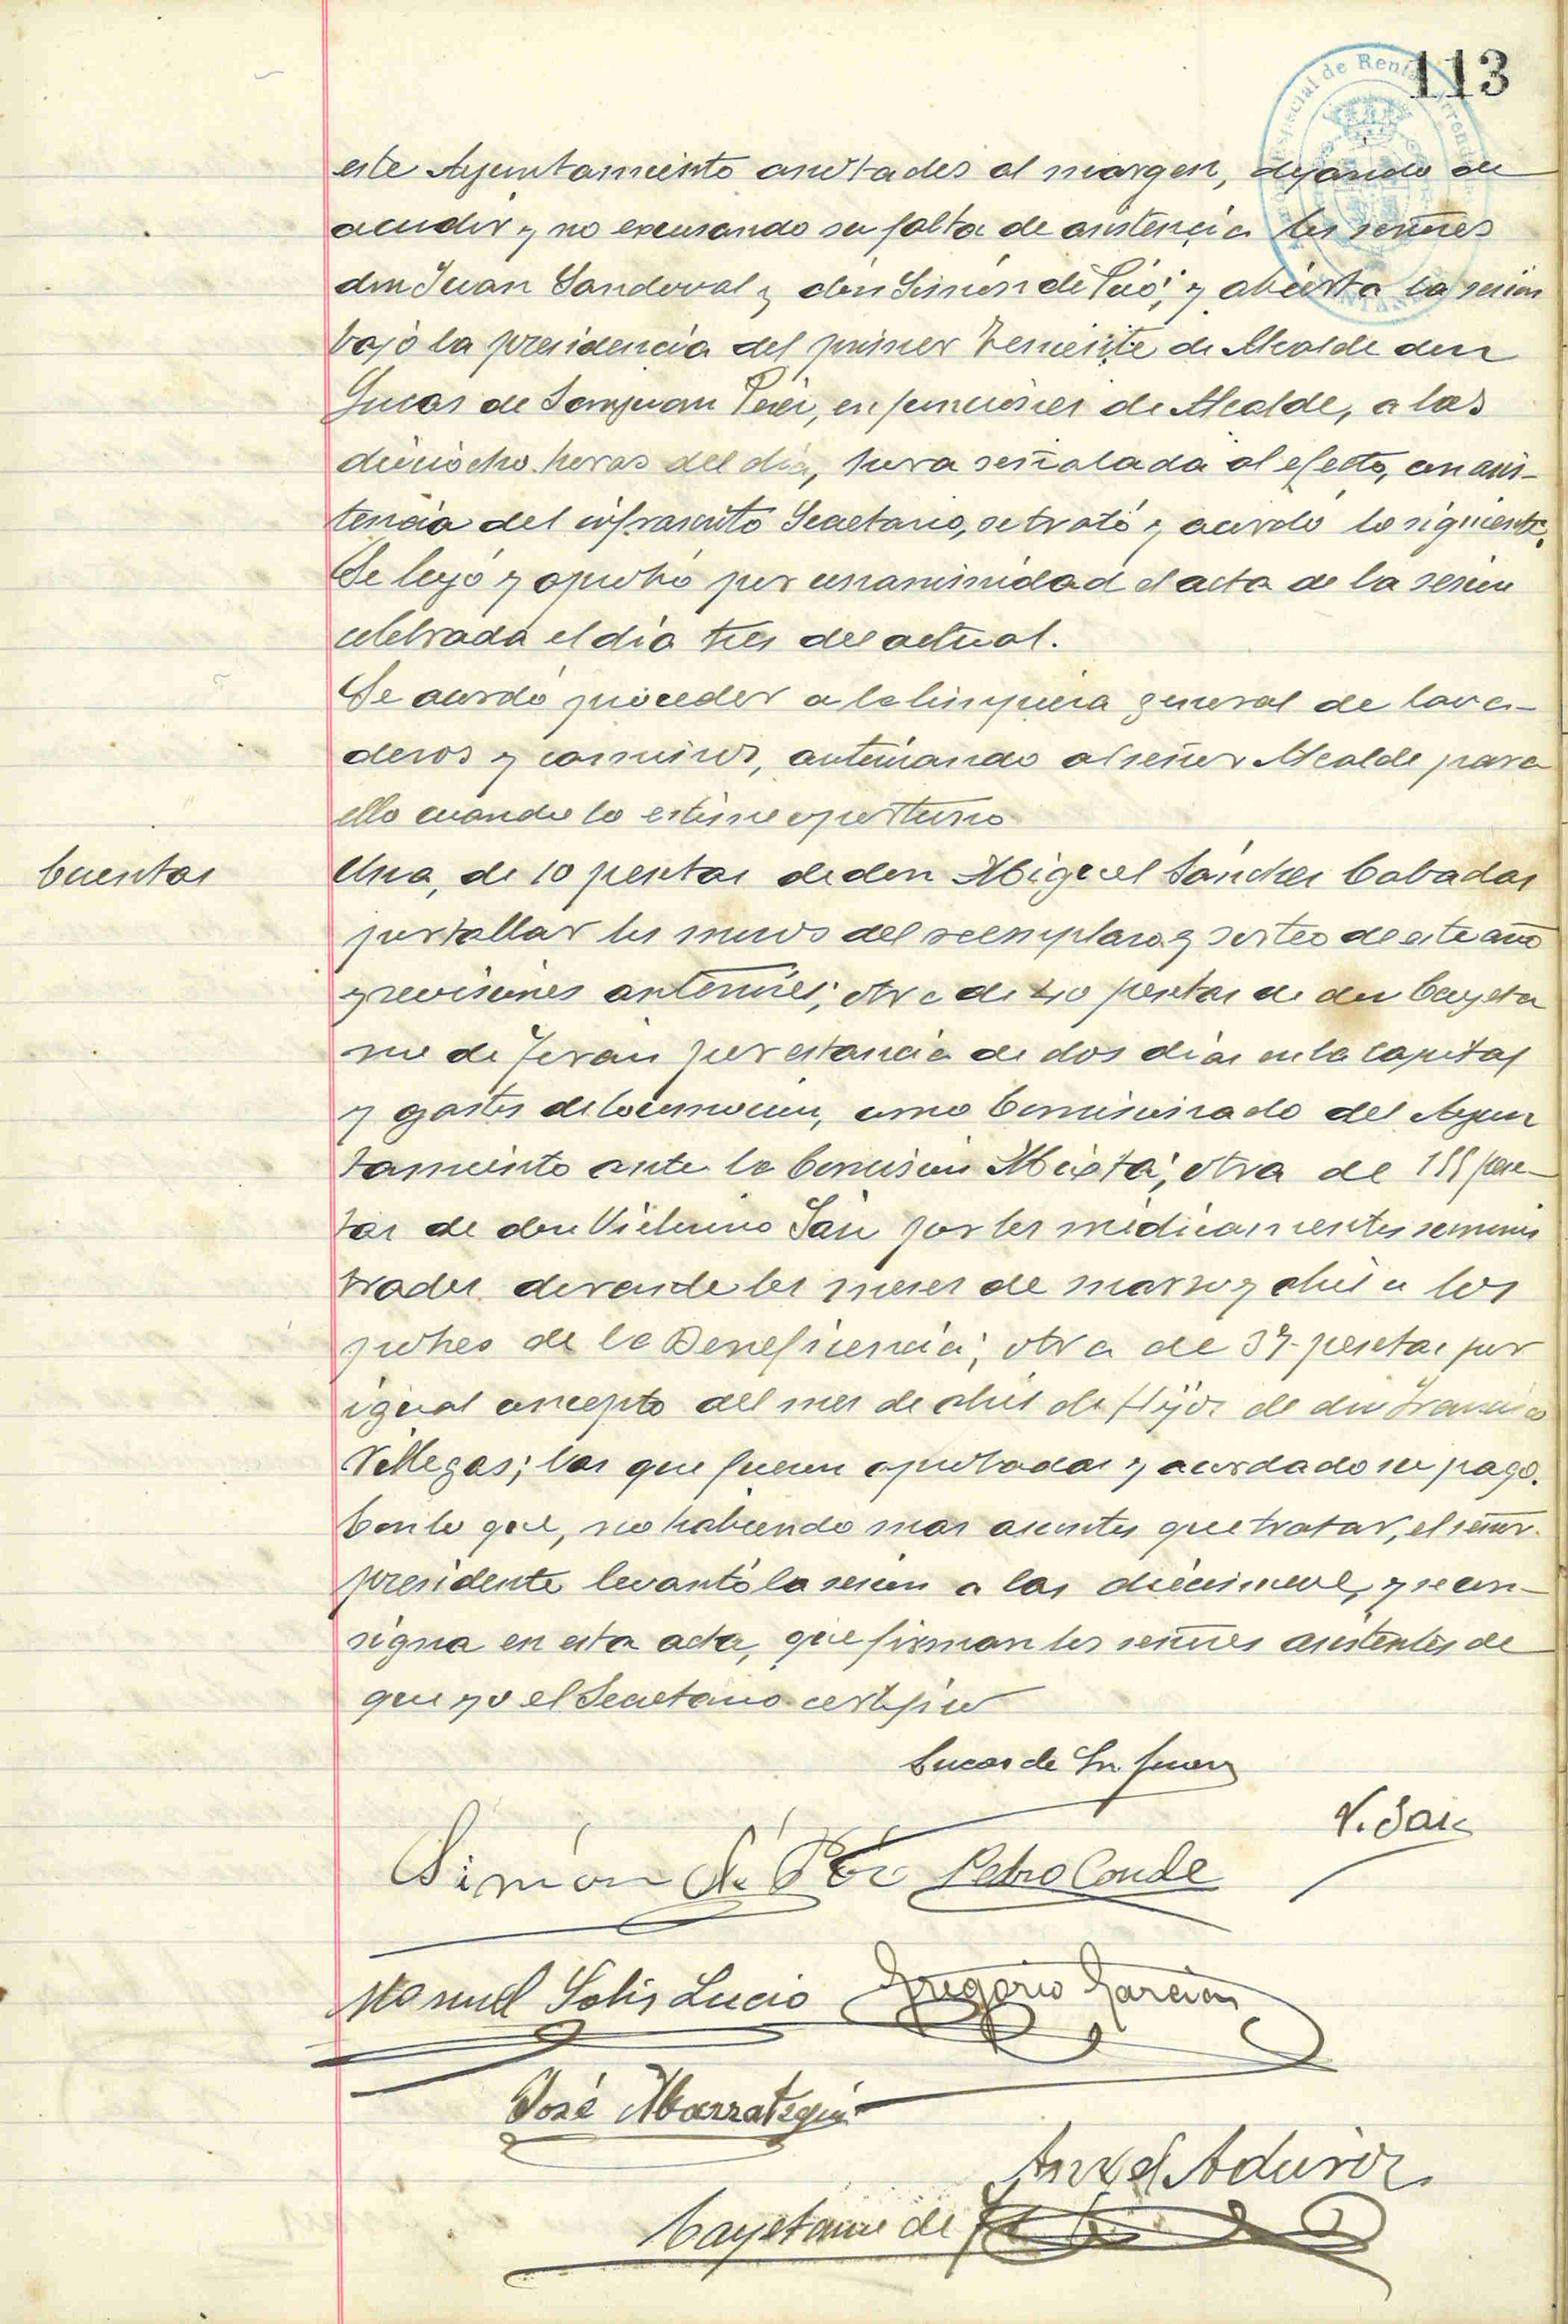 113
este Ayuntamiento anotados al margen, dejando de
acudir y no excusando su falta de asistencia los señores
don Juan Sandoval y don Simón de Pió; y abierta la sesión
bajo la presidencia del primer Teniente de Alcalde don
Lucas de Sanjuan Peir, en funciones de Alcalde, a las
dieciocho horas del día, hora señalada al efecto, con asis-
tencia del infrascrito Secretario, se trató y acordó lo siguiente.
Se leyó y aprobó por unanimidad el acta de la sesión
celebrada el día tres del actual.
Se acordó proceder a la limpieza general de lava-
deros y caminos, autorizando al señor Alcalde para
ello cuando lo estime oportuno
Cuentas
Una, de 10 pesetas de don Miguel Sánchez Cabadas
por tallar los mozos del reemplazo y sorteo de este año
y revisiones anteriores; otra de 40 pesetas de don Cayeta
no de Terán por estancia de dos días en la capital
y gastos de locomoción, como Comisionado del Ayun
tamiento ante la Comisión Mixta; otra de 155 pese-
tas de don Victorino Saiz por los medicamentos suminis
trados durante los meses de marzo y abril a los
pobres de la Beneficencia; otra de 37 pesetas por
igual concepto del mes de abril de Hijos de don Francisco
Villegas; las que fueron aprobadas y acordado su pago.
Con lo que, no habiendo mas asuntos que tratar, el señor
presidente levantó la sesión a las diecinueve, y se con-
signa en esta acta, que firman los señores asistentes de
que yo el Secretario certifico
Lucas de Sn. Juan
V. Saiz
Simón de Pió Pedro Conde
Manuel Solis Lucio Gregorio García
José Abarrategui
Angel Aduriz
Cayetano de